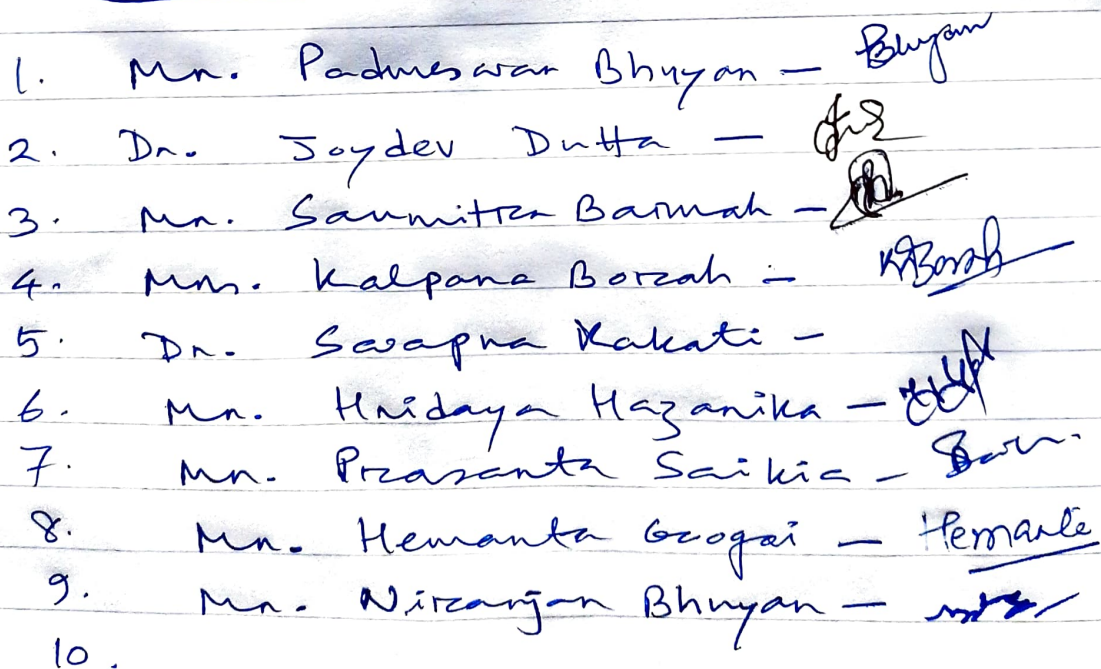 1. Mr. Padmeswar Bhuyan - Bhuyan
2. Dr. Joydev Dutta -
3. Mr. Saumitra Barmah -
4. Mrs. Kalpana Borah - KBorah
5. Dr. Swapna Kakati -
6. Mr. Hridaya Hazarika -
7. Mr. Prasanta Saikia -
8. Mr. Hemanta Gogoi - Hemanta
9. Mr. Niranjan Bhuyan -
10.